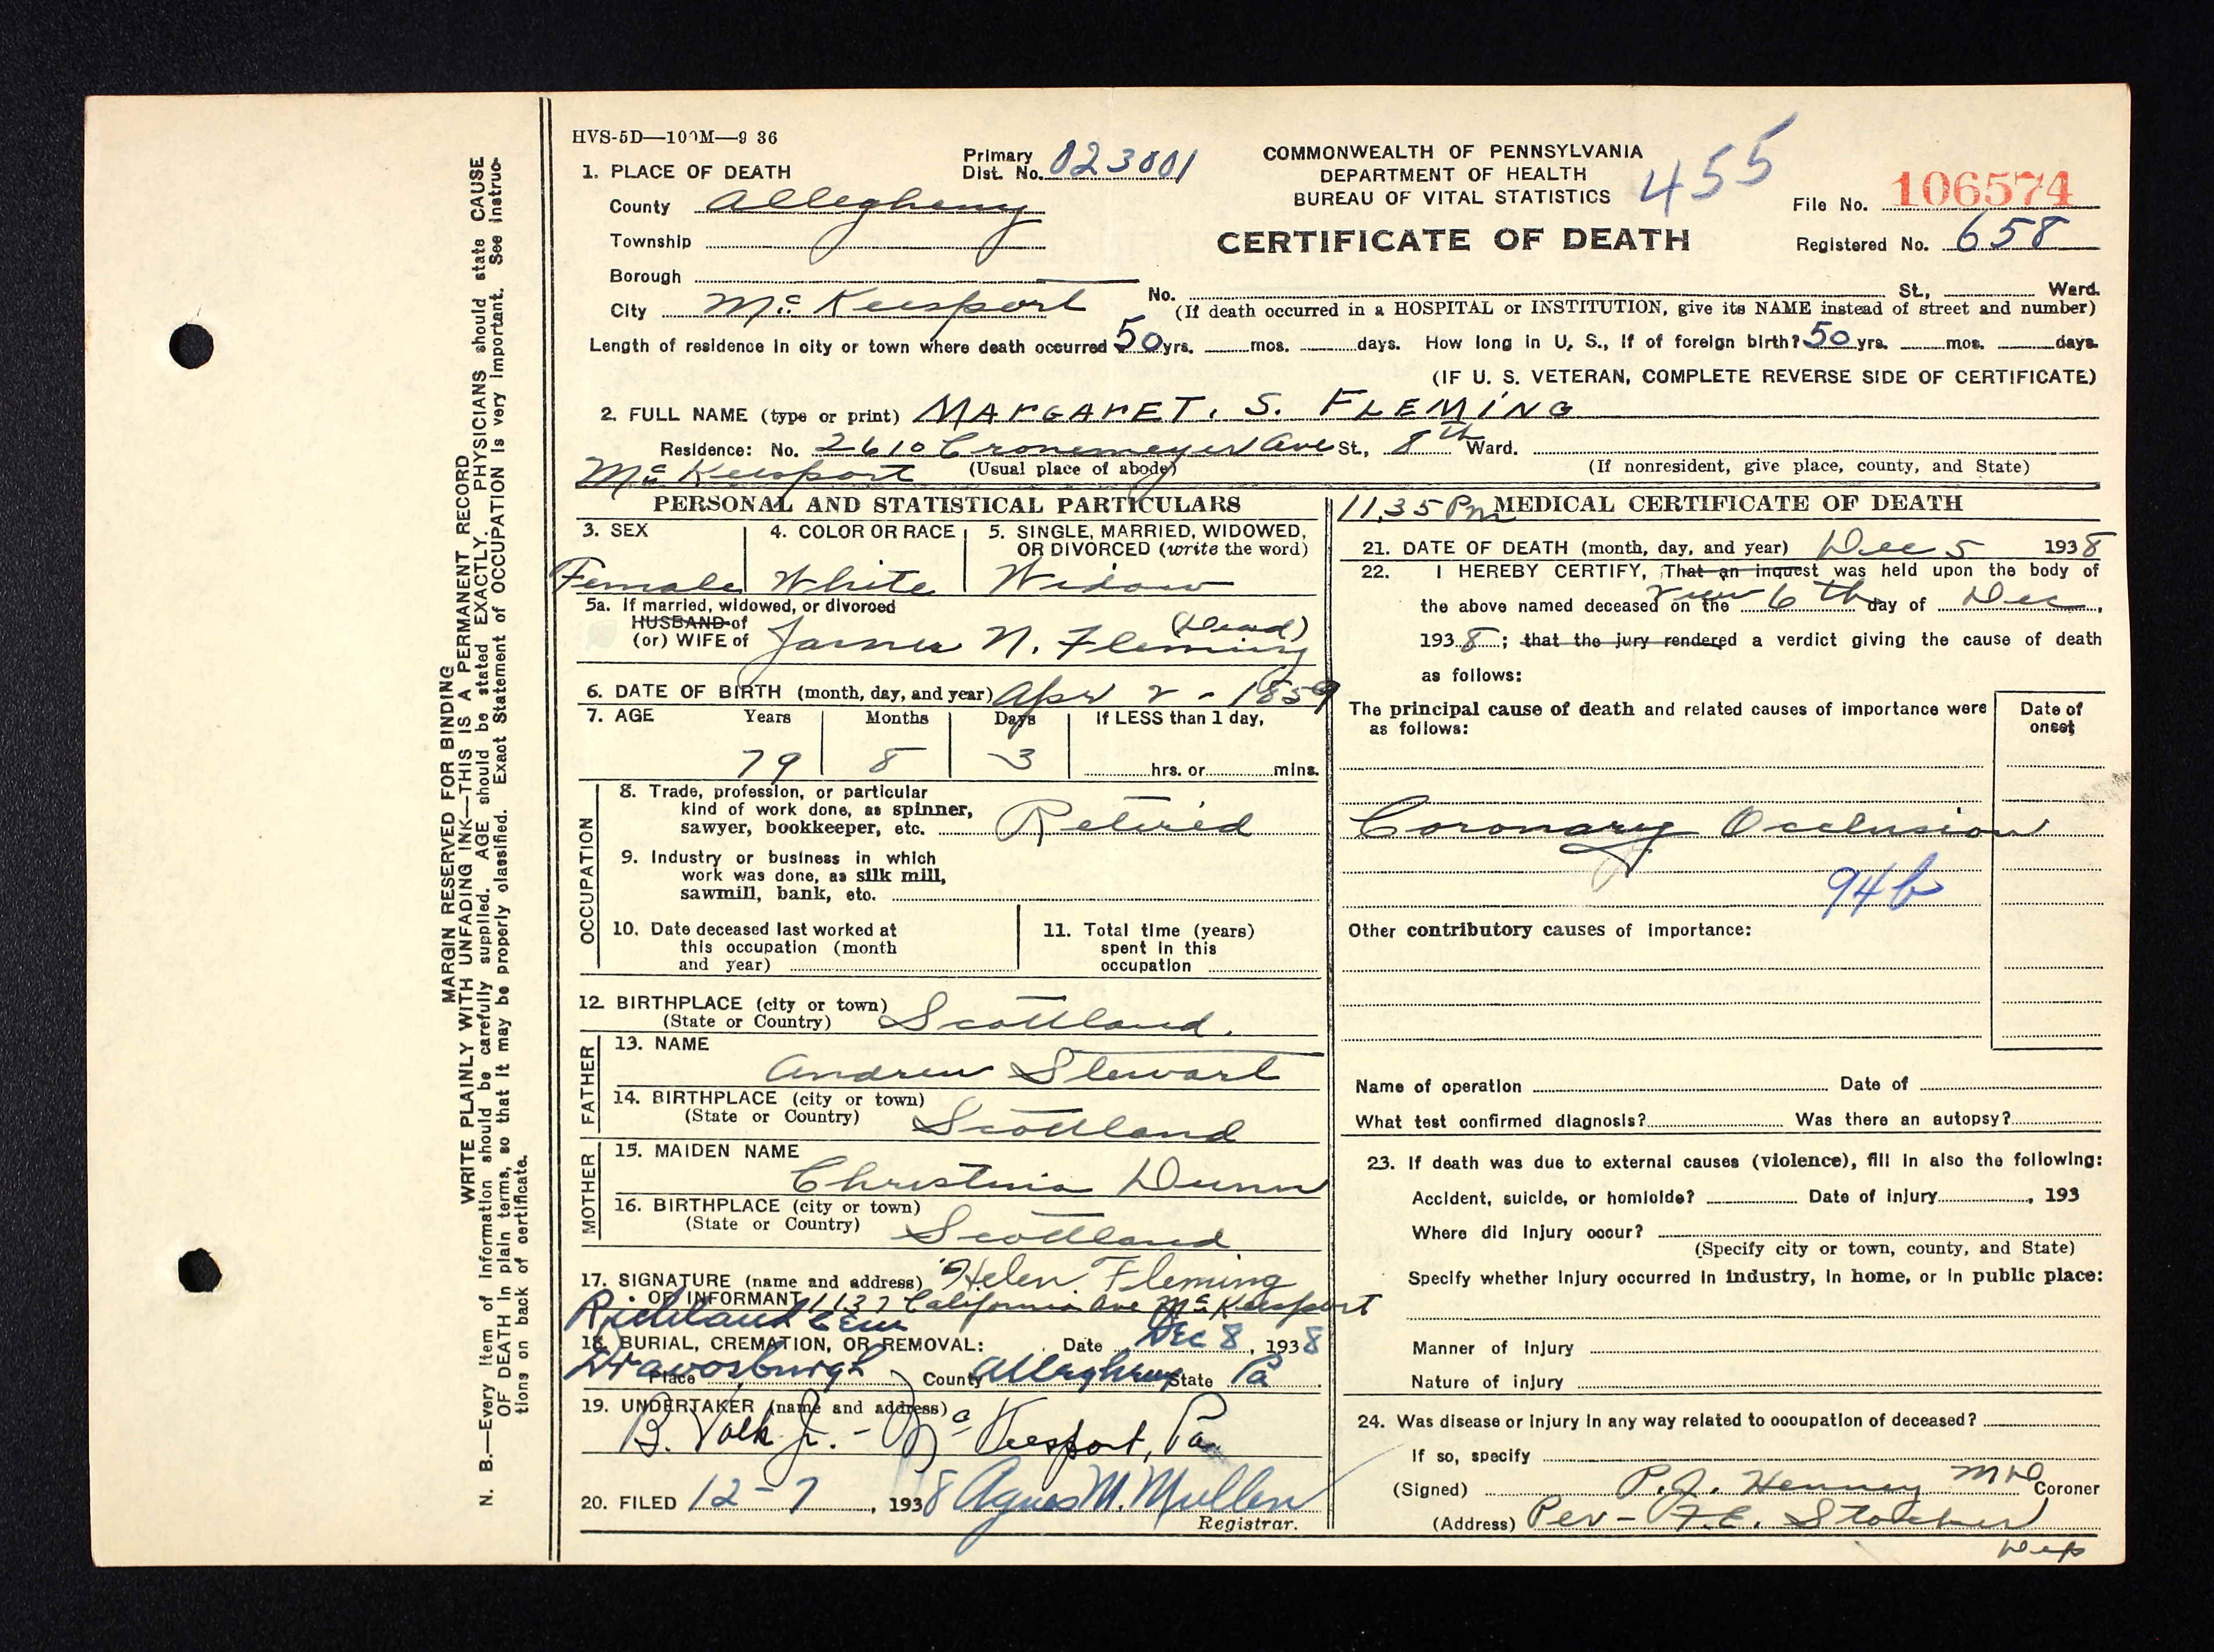 HVS-5D—100M—9 36
1. PLACE OF DEATH
Primary
Dist. No. 023001
COMMONWEALTH OF PENNSYLVANIA
DEPARTMENT OF HEALTH
BUREAU OF VITAL STATISTICS
455
File No. 106574
County Allegheny
Township
CERTIFICATE OF DEATH
Registered No. 658
Borough
City Mc Keesport
No. St., Ward.
(If death occurred in a HOSPITAL or INSTITUTION, give its NAME instead of street and number)
Length of residence in city or town where death occurred 50 yrs. mos. days. How long in U. S., if of foreign birth? 50 yrs. mos. days
(IF U. S. VETERAN, COMPLETE REVERSE SIDE OF CERTIFICATE)
2. FULL NAME (type or print) MARGARET. S. FLEMING
Residence: No. 2610 Cronemeyer Ave St., 8th Ward.
Mc Keesport (Usual place of abode)
(If nonresident, give place, county, and State)
PERSONAL AND STATISTICAL PARTICULARS
3. SEX
Female
4. COLOR OR RACE
White
5. SINGLE, MARRIED, WIDOWED,
OR DIVORCED (write the word)
Widow
5a. If married, widowed, or divorced
HUSBAND of
(or) WIFE of James N. Fleming (Dead)
6. DATE OF BIRTH (month, day, and year) Apr 2 - 1859
7. AGE Years Months Days If LESS than 1 day,
79 8 3 hrs. or mins.
OCCUPATION
8. Trade, profession, or particular
kind of work done, as spinner,
sawyer, bookkeeper, etc. Retired
9. Industry or business in which
work was done, as silk mill,
sawmill, bank, etc.
10. Date deceased last worked at
this occupation (month
and year)
11. Total time (years)
spent in this
occupation
12. BIRTHPLACE (city or town)
(State or Country) Scottland.
FATHER
13. NAME
Andrew Stewart
14. BIRTHPLACE (city or town)
(State or Country) Scottland
MOTHER
15. MAIDEN NAME
Christina Dunn
16. BIRTHPLACE (city or town)
(State or Country) Scottland
17. SIGNATURE (name and address) Helen Fleming
OF INFORMANT 1137 California Ave Mc Keesport
Richland Cem
18. BURIAL, CREMATION, OR REMOVAL: Date Dec 8, 1938
Place Dravosburgh County Allegheny State Pa
19. UNDERTAKER (name and address)
B. Volk Jr. - Mc Keesport, Pa
20. FILED 12-7, 1938 Agnes M. Mullen
Registrar.
11.35 Pm MEDICAL CERTIFICATE OF DEATH
21. DATE OF DEATH (month, day, and year) Dec 5 1938
22. I HEREBY CERTIFY, That an inquest was held upon the body of
the above named deceased view on the 6th day of Dec,
1938; that the jury rendered a verdict giving the cause of death
as follows:
The principal cause of death and related causes of importance were
as follows:
Date of
onset
Coronary Occlusion
94b
Other contributory causes of importance:
Name of operation Date of
What test confirmed diagnosis? Was there an autopsy?
23. If death was due to external causes (violence), fill in also the following:
Accident, suicide, or homicide? Date of injury, 193
Where did injury occur?
(Specify city or town, county, and State)
Specify whether injury occurred in industry, in home, or in public place:
Manner of injury
Nature of injury
24. Was disease or injury in any way related to occupation of deceased?
If so, specify
(Signed) P.J. Henney MD Coroner
(Address) Per - F.E. Dep
MARGIN RESERVED FOR BINDING
WRITE PLAINLY WITH UNFADING INK—THIS IS A PERMANENT RECORD
N. B.—Every item of information should be carefully supplied. AGE should be stated EXACTLY. PHYSICIANS should state CAUSE
OF DEATH in plain terms, so that it may be properly classified. Exact Statement of OCCUPATION is very important. See instruc-
tions on back of certificate.